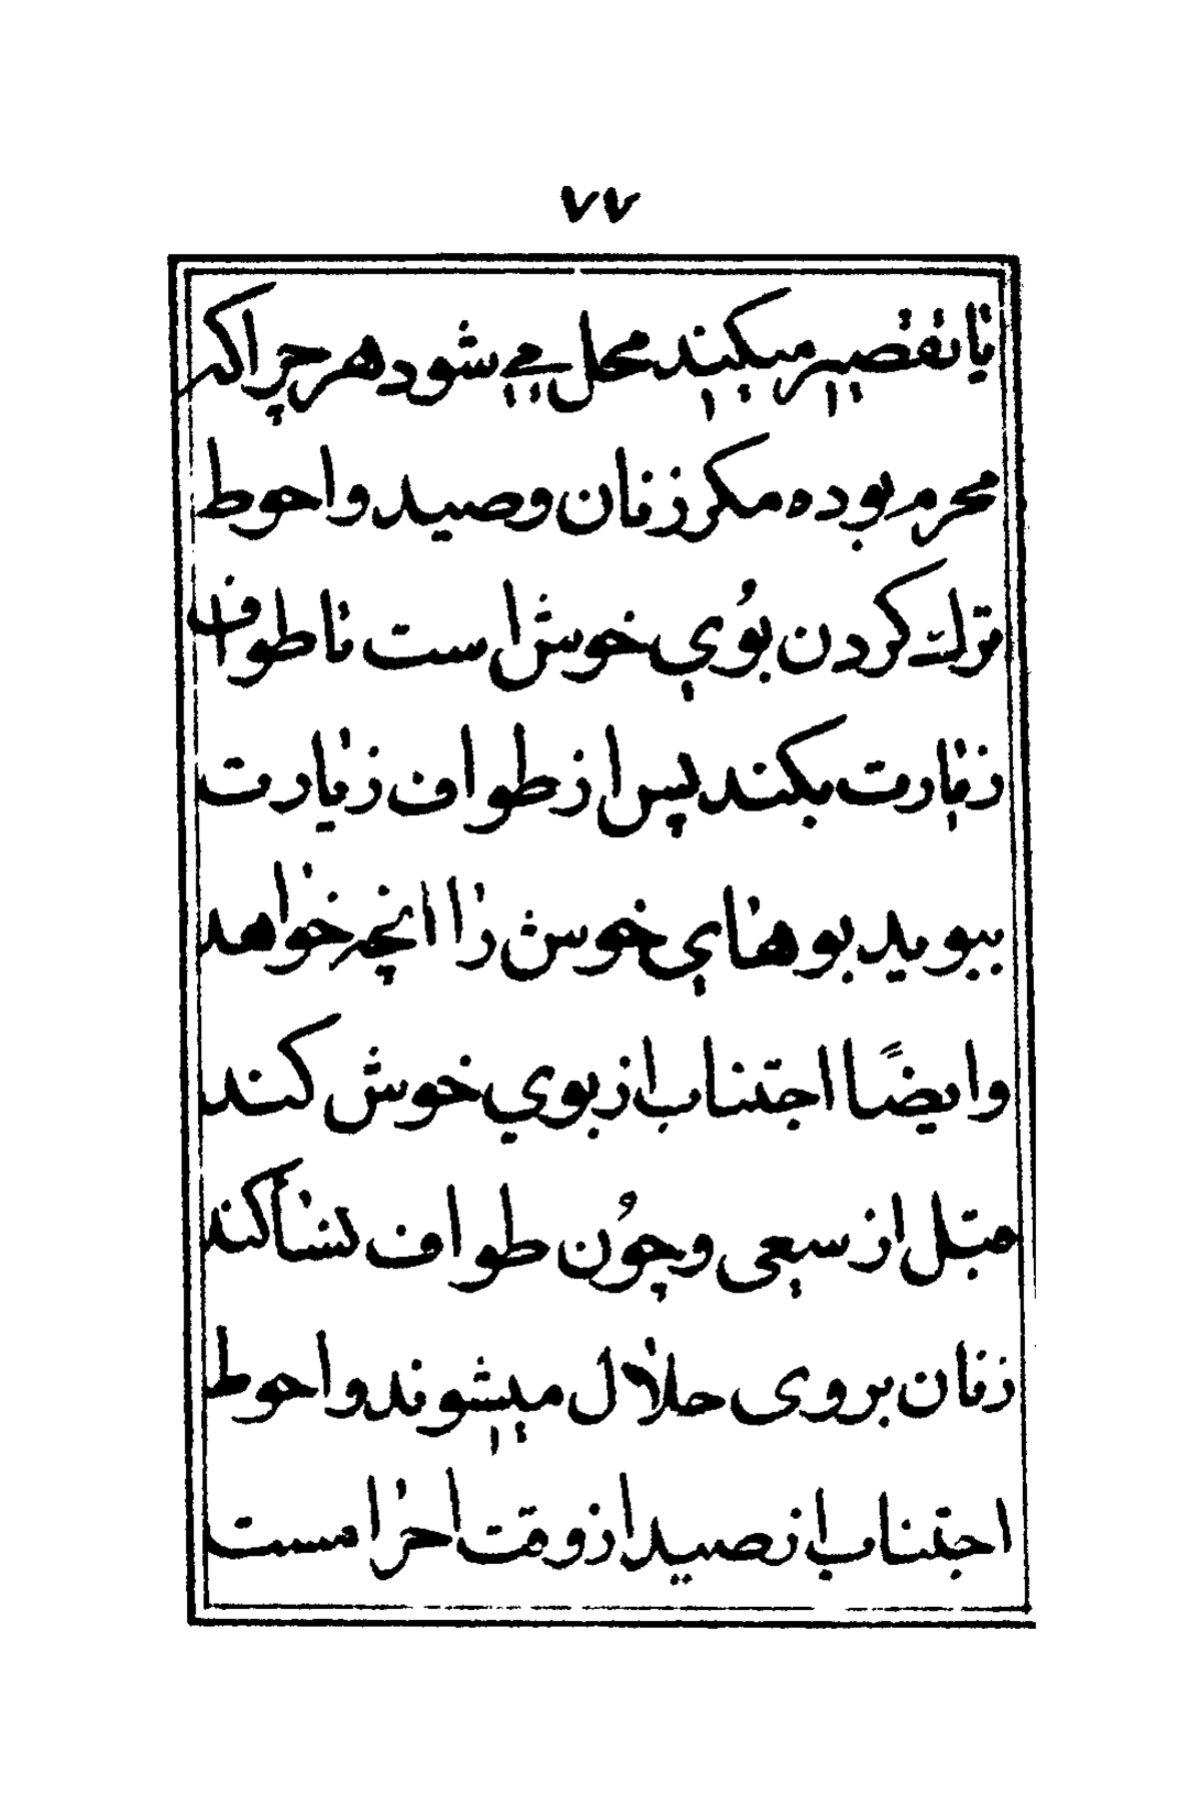 ۷۷
یا تقصیر میکند محل می شود هر چرا که
محرم بوده مکر زنان و صید و احوط
ترک کردن بُوي خوش است تا طواف
زیارت بکند پس از طواف زیارت
ببوید بوهاي خوش را انچه خواهد
و ایضًا اجتناب از بوي خوش کند
قبل از سعی و چوُن طواف نسأ کند
زنان بر وی حلال میشوند و احوط
اجتناب از صید از وقت احرامست